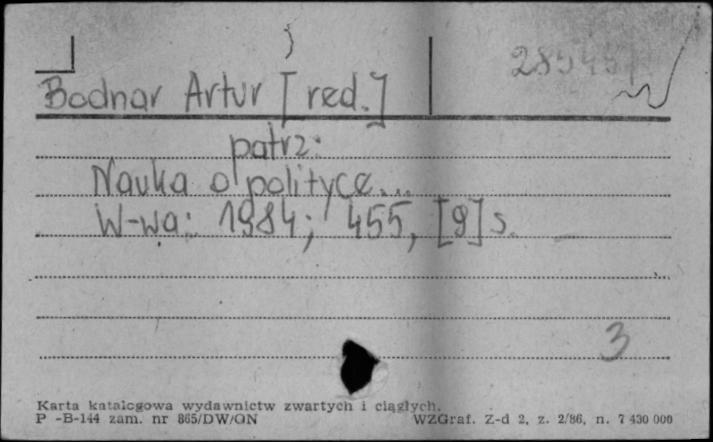 Bodnar Artur [red.]
patrz:
Nauka o polityce...
W-wa: 1984; 455, [9] s.
3
Karta katalogowa wydawnictw zwartych i ciągłych.
P -B-144 zam. nr 865/DW/ON WZGraf. Z-d 2, z. 2/86, n. 7 430 000